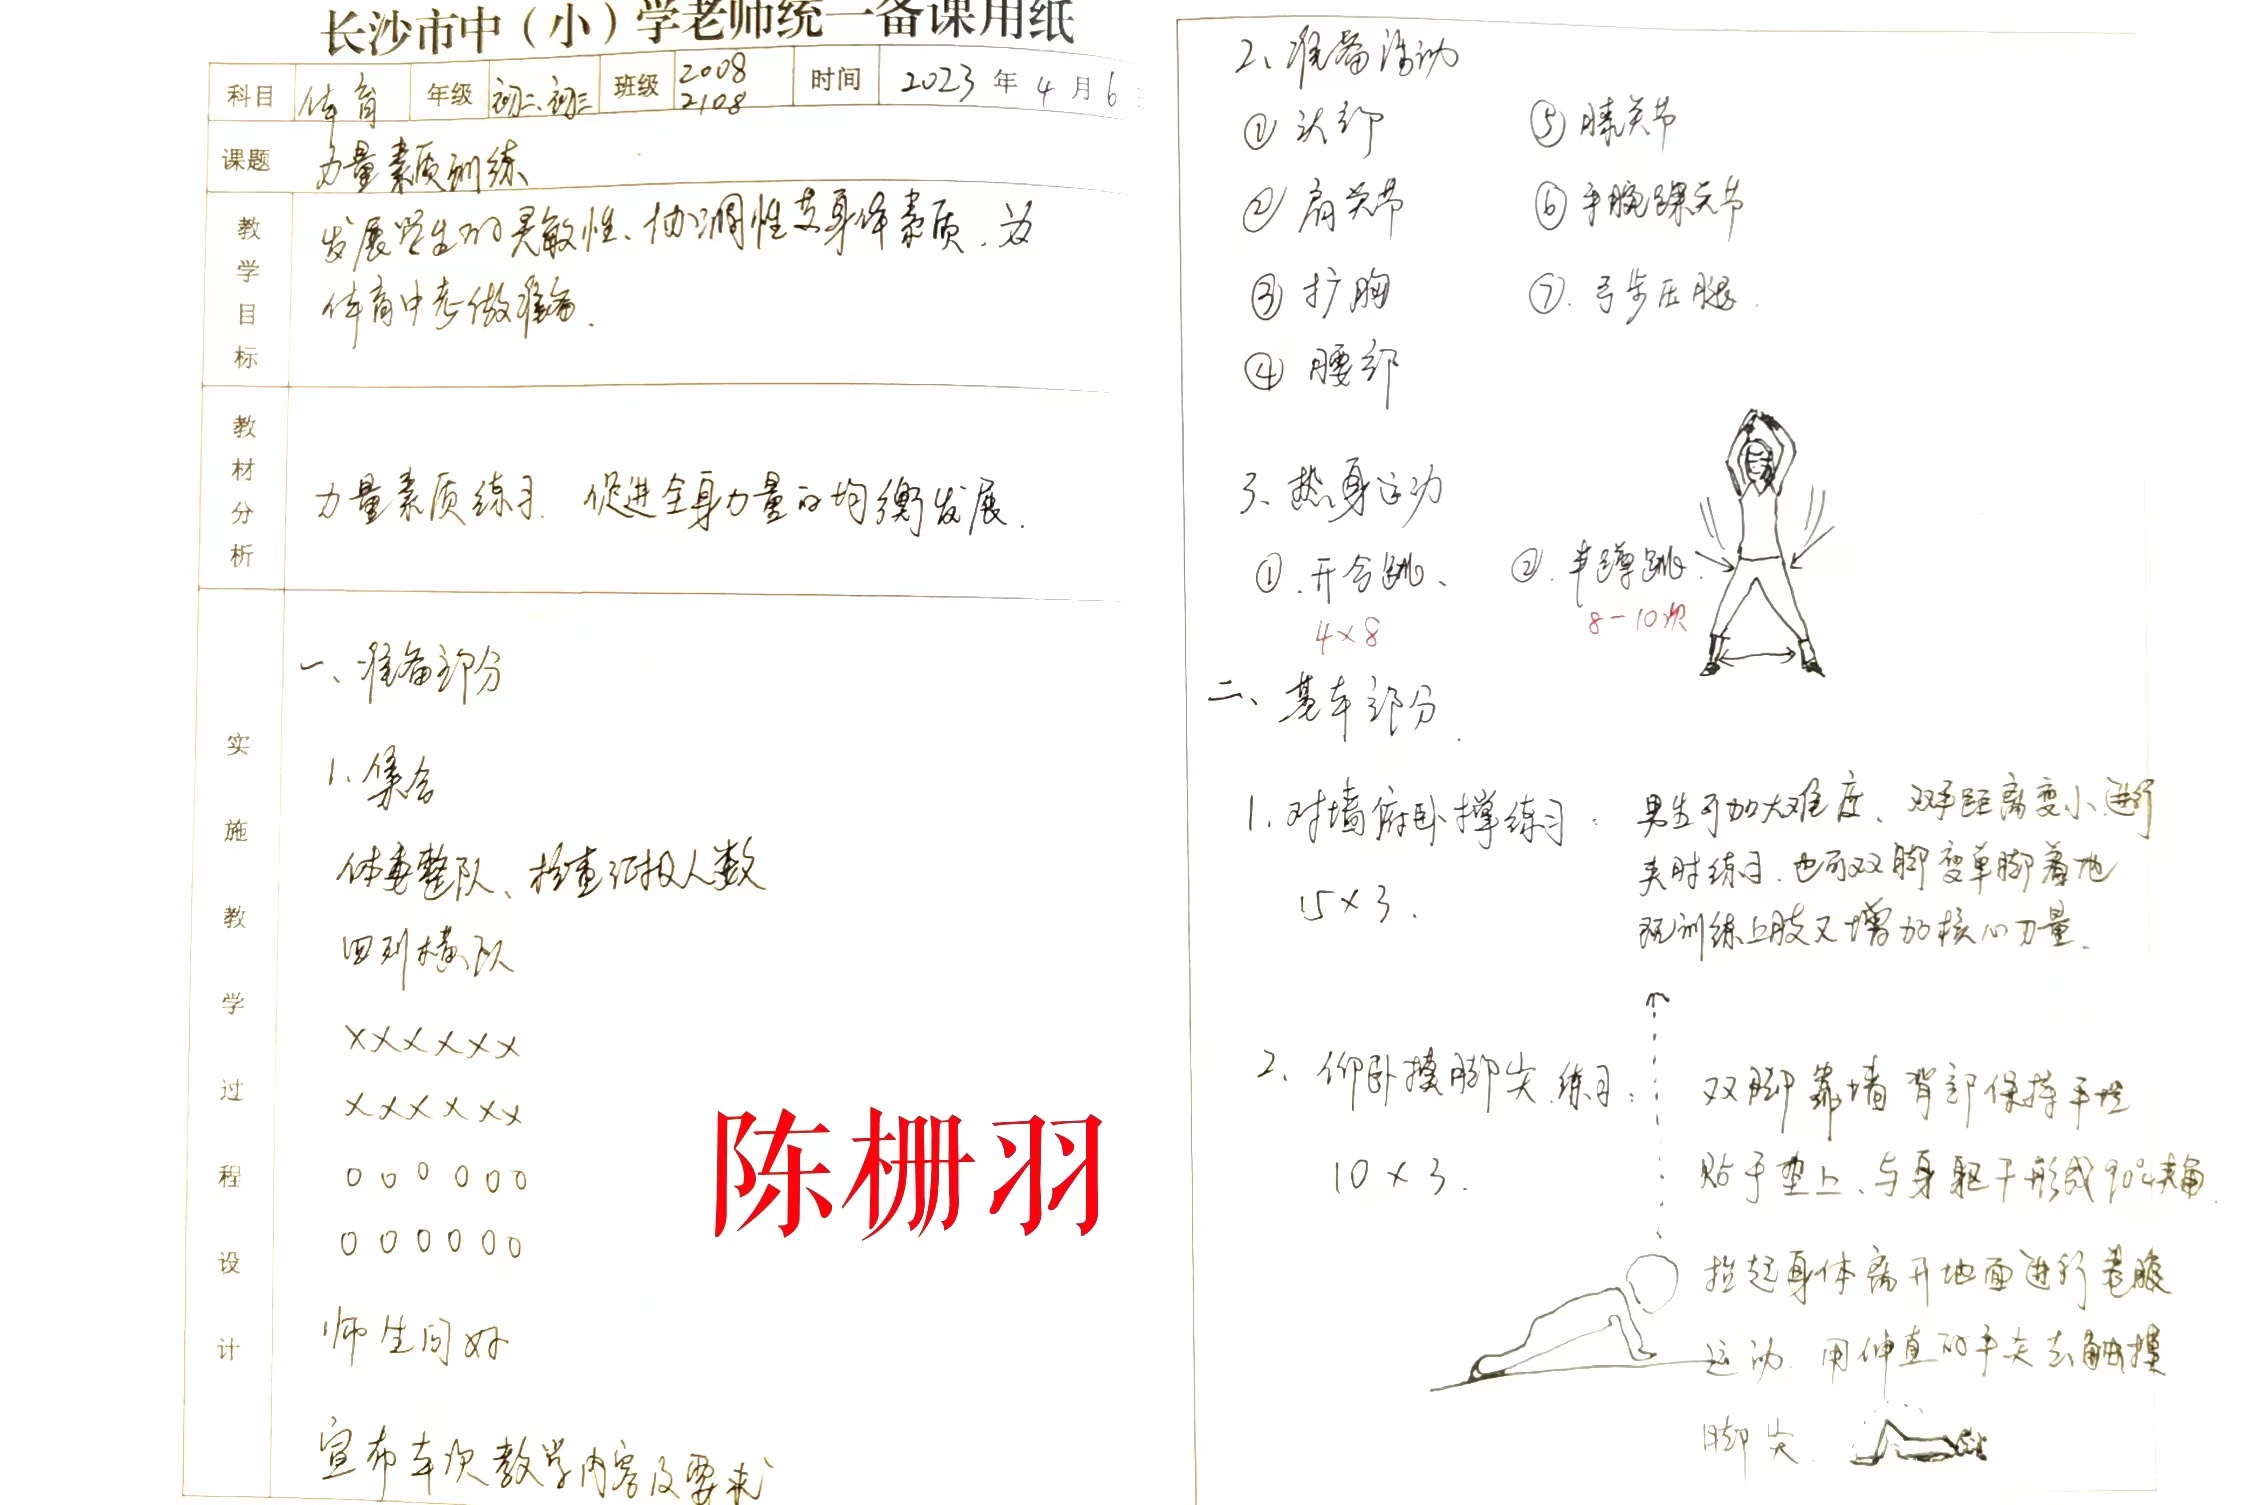 长沙市中（小）学老师统一备课用纸
科目 体育 年级 初二、初三 班级 2008 2108 时间 2023年4月6
课题 力量素质训练
教学目标
发展学生的灵敏性、协调性及身体素质.为
体育中考做准备.
教材分析
力量素质练习.促进全身力量的均衡发展.
实施教学过程设计
一、准备部分
1、集合
体委整队、检查汇报人数
四列横队
××××××
××××××
○○○○○○
○○○○○○
师生问好
宣布本次教学内容及要求
陈栅羽
2、准备活动
① 头部 ⑤ 膝关节
② 肩关节 ⑥ 手腕踝关节
③ 扩胸 ⑦.弓步压腿.
④ 腰部
3、热身运动
①.开合跳、 ②.半蹲跳.
4×8 8-10次
二、基本部分.
1.对墙俯卧撑练习：男生可加大难度、双手距离变小进行
夹肘练习.也可双脚变单脚着地
15×3.
既训练上肢又增加核心力量.
2、仰卧摸脚尖练习：双脚靠墙背部保持平坦
10×3. 贴于垫上、与身躯干形成90°夹角.
抬起身体离开地面进行卷腹
运动.用伸直的手去触摸
脚尖.